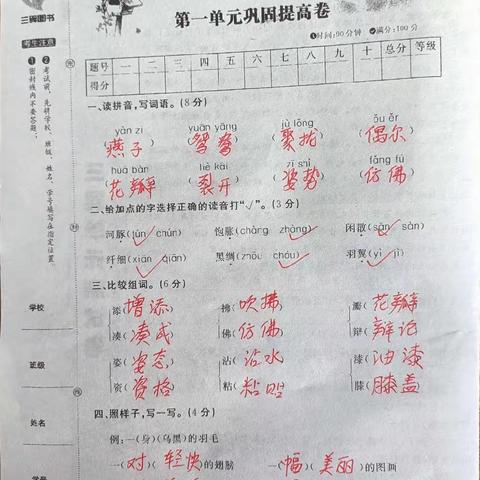 三碗图书
第一单元巩固提高卷
时间:90分钟 满分:100分
考生注意
①密封线内不要答题;
②考试前,先研学校、班级、姓名、学号填写在指定位置。
题号 一 二 三 四 五 六 七 八 九 十 总分 等级
得分
一、读拼音,写词语。(8分)
yàn zi yuān yāng jù lǒng ǒu ěr
(燕子) (鸳鸯) (聚拢) (偶尔)
huā bàn liè kāi zī shì fǎng fú
(花瓣) (裂开) (姿势) (仿佛)
二、给加点的字选择正确的读音打“√”。(3分)
河豚(tún√ chún) 饱胀(chàng zhàng√) 闲散(sǎn√ sàn)
纤细(xiān√ qiān) 黑绸(zhōu chóu√) 羽翼(yì√ jì)
三、比较组词。(6分)
添(增添) 拂(吹拂) 瓣(花瓣)
凑(凑成) 佛(仿佛) 辩(辩论)
姿(姿态) 沾(沾水) 漆(油漆)
资(资格) 粘(粘贴) 膝(膝盖)
四、照样子,写一写。(4分)
例:一(身)(乌黑)的羽毛
一(对)(轻快)的翅膀 一(幅)(美丽)的图画
学校
班级
姓名
学号